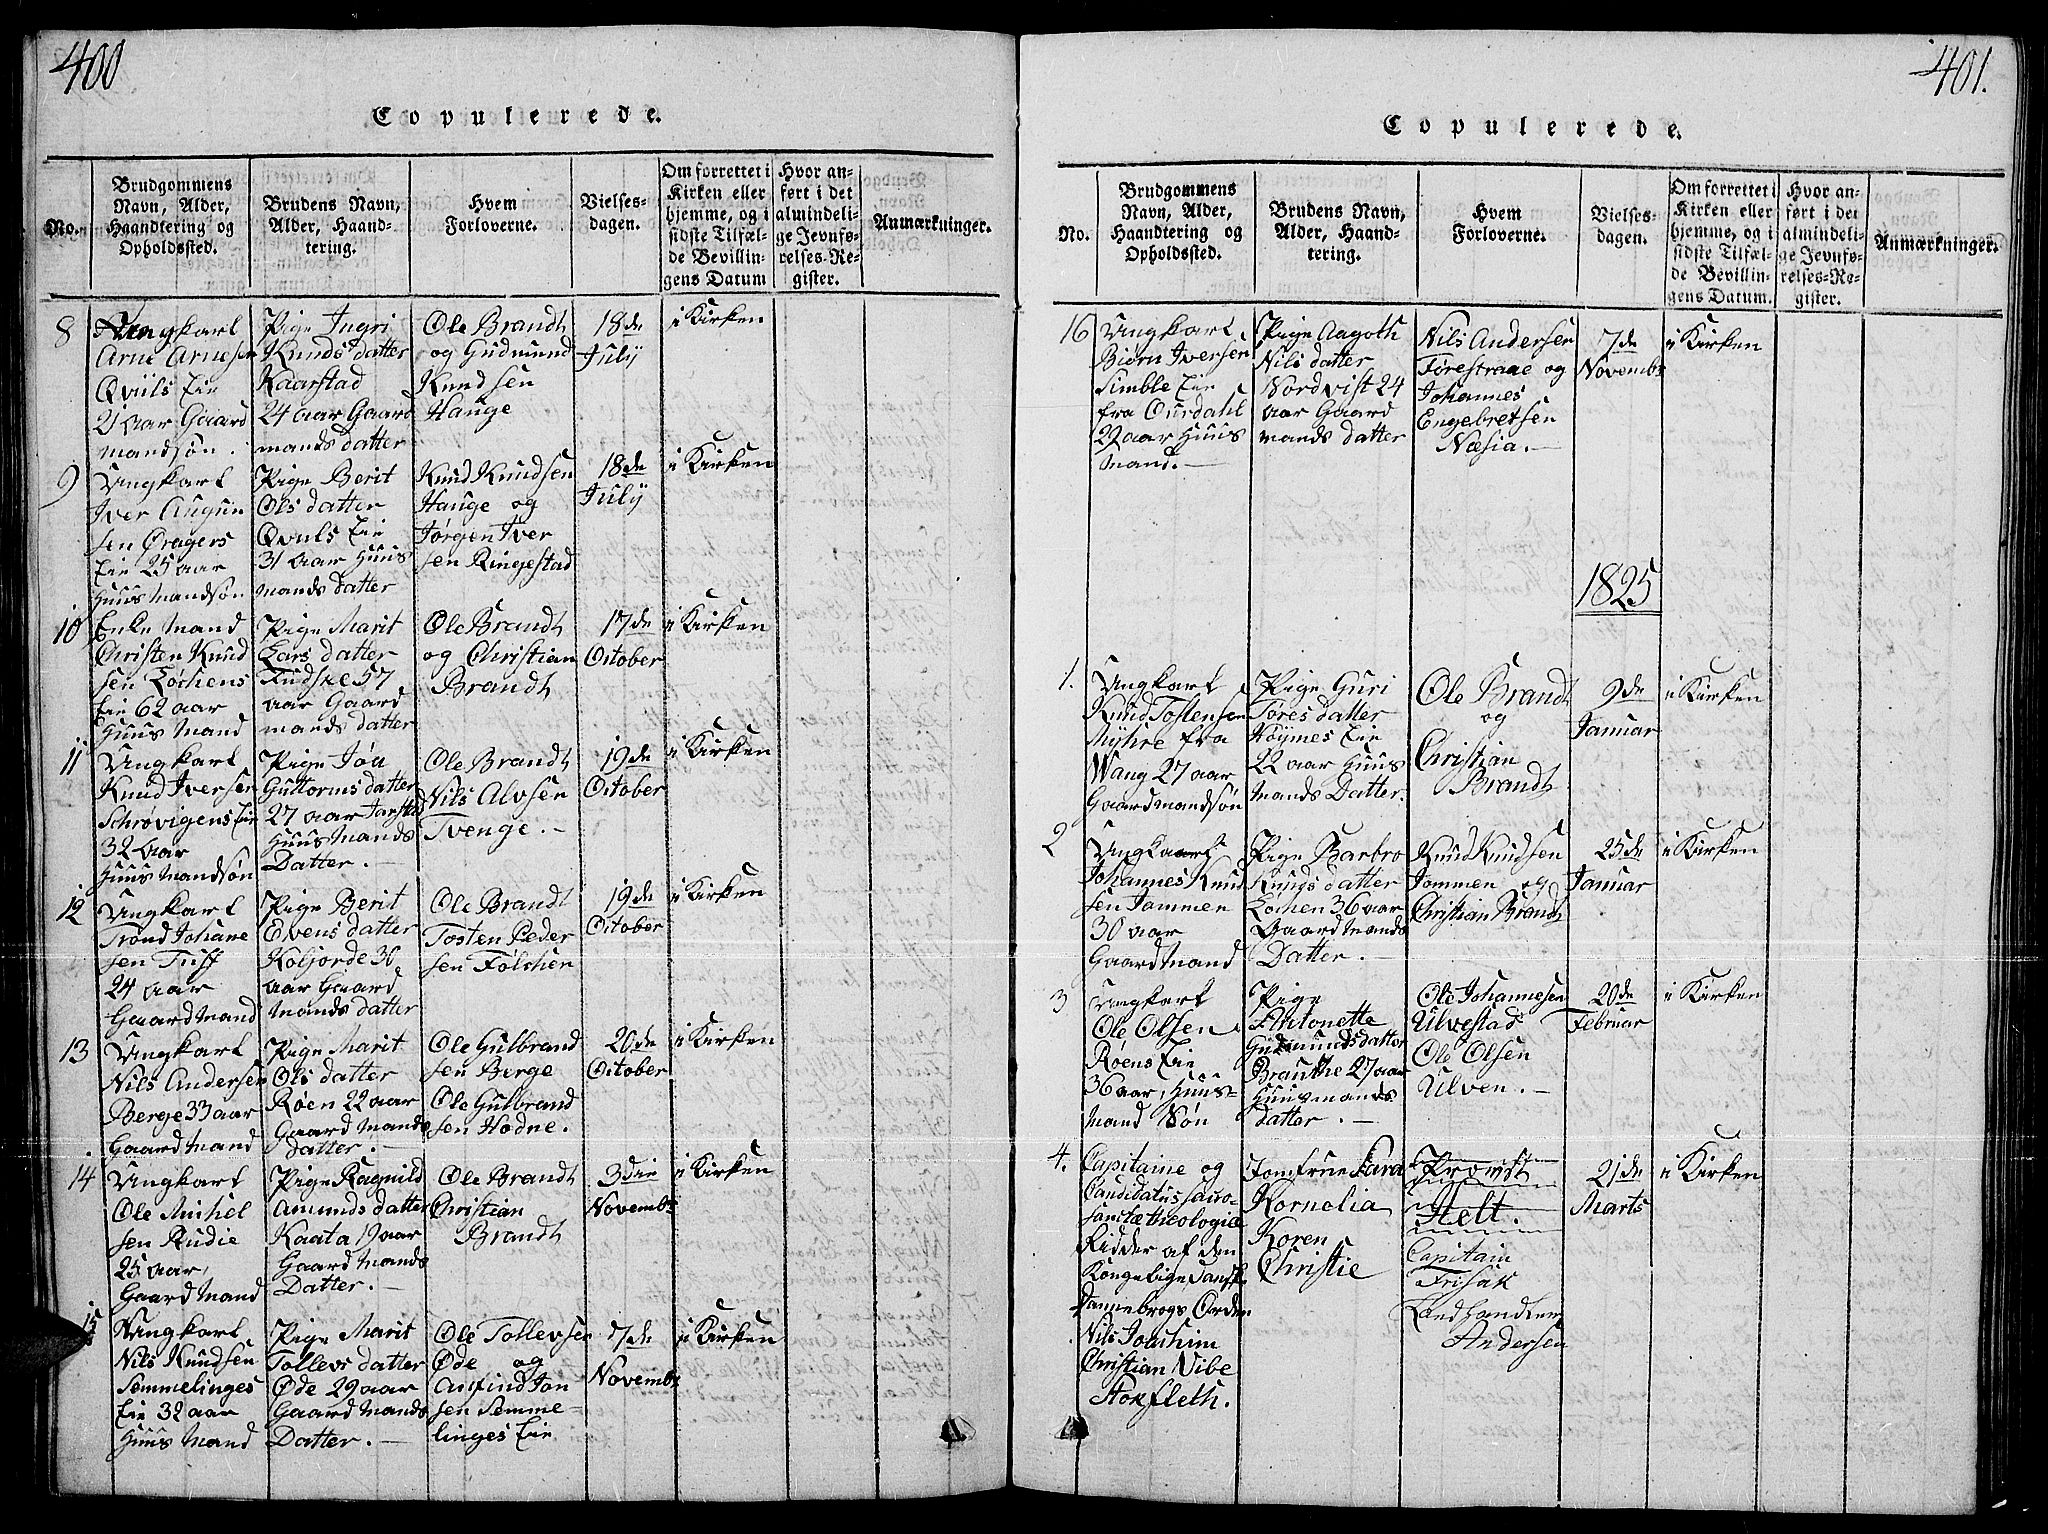 400
Copulerede.
No.
Brudgommens
Navn, Alder,
Haandtering og
Opholdssted.
Brudens Navn,
Alder, Haand-
tering.
Hvem
Forloverne.
Vielses-
dagen.
Om forrettet i
Kirken eller
hjemme, og i
sidste Tilfæl-
de Bevillin-
gens Datum
Hvor an-
ført i det
almindeli-
ge Jevnfø-
relses-Re-
gister.
Anmærkninger.
8
Ungkarl
Arne Arnesen
Qviils Eie
21 aar Gaard
mandsøn.
Pige Ingri
Knuds datter
Kaarstad
24 aar Gaard
mands datter
Ole Brandt
og Gudmund
Knudsen
Hauge
18de
July
i Kirken
9
Ungkarl
Iver Augun
sen Øragers
Eie 25 aar
Huus mandsøn
Pige Berit
Ols datter
Qvuls Eie
31 aar Huus
mands datter
Knud Knudsen
Hauge og
Jørgen Iver
sen Ringestad
18de
July
i Kirken
10
Enke Mand
Christen Knud
sen Lochens
Eie 62 aar
Huus Mand
Pige Marit
Lars datter
Fudske 57
aar Gaard
mands datter
Ole Brandt
og Christian
Brandt
17de
October
i Kirken
11
Ungkarl
Knud Iversen
Schrøvigens Eie
32 aar
Huus Mandsøn
Pige Jøa
Guttorms datter
27 aar Jarstad
Huus Mands
Datter.
Ole Brandt
Nils Alvsen
Tvenge.
19de
October
i Kirken
12
Ungkarl
Trond Johane
sen Tuff
24 aar
Gaard Mand
Pige Berit
Evens datter
Koljorde 30
aar Gaard
Mands datter
Ole Brandt
Tosten Peder
sen Følchen
19de
October
i Kirken
13
Ungkarl
Nils Andersen
Berge 33 aar
Gaard Mand
Pige Marit
Ols datter
Røen 22 aar
Gaard Mands
Datter.
Ole Gulbrand
sen Berge
Ole Gulbrand
sen Hodne.
20de
October
i Kirken
14
Ungkarl
Ole Michel
sen Rudie
25 aar,
Gaard Mand
Pige Ragnild
Amunds datter
Kaata 19 aar
Gaard Mands
Datter.
Ole Brandt
Christian
Brandt
3die
Novembr
i Kirken
15
Ungkarl
Nils Knudsen
Semmelinges
Eie 32 aar
Huus Mand
Pige Marit
Tollevs datter
Øde 29 aar
Gaard Mands
Datter.
Ole Tollevsen
Øde og
Anfind Jon
sen Semme-
linges Eie
7de
Novembr
i Kirken
401.
Copulerede.
No.
Brudgommens
Navn, Alder,
Haandtering og
Opholdssted.
Brudens Navn,
Alder, Haand-
tering.
Hvem
Forloverne.
Vielses-
dagen.
Om forrettet i
Kirken eller
hjemme, og i
sidste Tilfæl-
de Bevillin-
gens Datum.
Hvor an-
ført i det
almindeli-
ge Jevnfø-
relses-Re-
gister.
Anmærkninger.
16
Ungkarl
Biørn Iversen
Simble Eie
fra Ourdahl
29 aar Huus
Mand.
Pige Aagoth
Nils datter
Nordvist 24
aar Gaard
mands datter
Nils Andersen
Førestrane og
Johannes
Engebretsen
Næsia.
7de
Novembr
i Kirken
1825
1.
Ungkarl
Knud Tostensen
Myhre fra
Wang 27 aar
Gaardmandsøn
Pige Guri
Tores datter
Höymes Eie
22 aar Huus
Mands Datter.
Ole Brandt
og
Christian
Brandt
9de
Januar
i Kirken
2
Ungkarl
Johannes Knud
sen Jommen
30 aar
Gaard Mand
Pige Barbro
Knuds datter
Lochen 36 aar
Gaard Mands
Datter.
Knud Knudsen
Jommen og
Christian Brandt
25de
Januar
i Kirken
3
Ungkarl
Ole Olsen
Røens Eie
36 aar, Huus-
Mand Søn
Pige
Antonette
Gudmunds datter
Brauthe 27 aar
Huusmands
datter.
Ole Johannesen
Ulvestad
Ole Olsen
Ulven.
20de
Februar
i Kirken
4.
Capitaine og
Candidatus sacro-
sanctæ theologiæ
Ridder af den
Kongelige Dansk
Dannebrogs Orden
Nils Joachim
Christian Vibe
Stokfleth.
Jomfrue Sara
Kornelia
Koren
Christie
Provst
Helt.
Capitain
Frisak
Landhandler
Andersen
21de
Marts
i Kirken